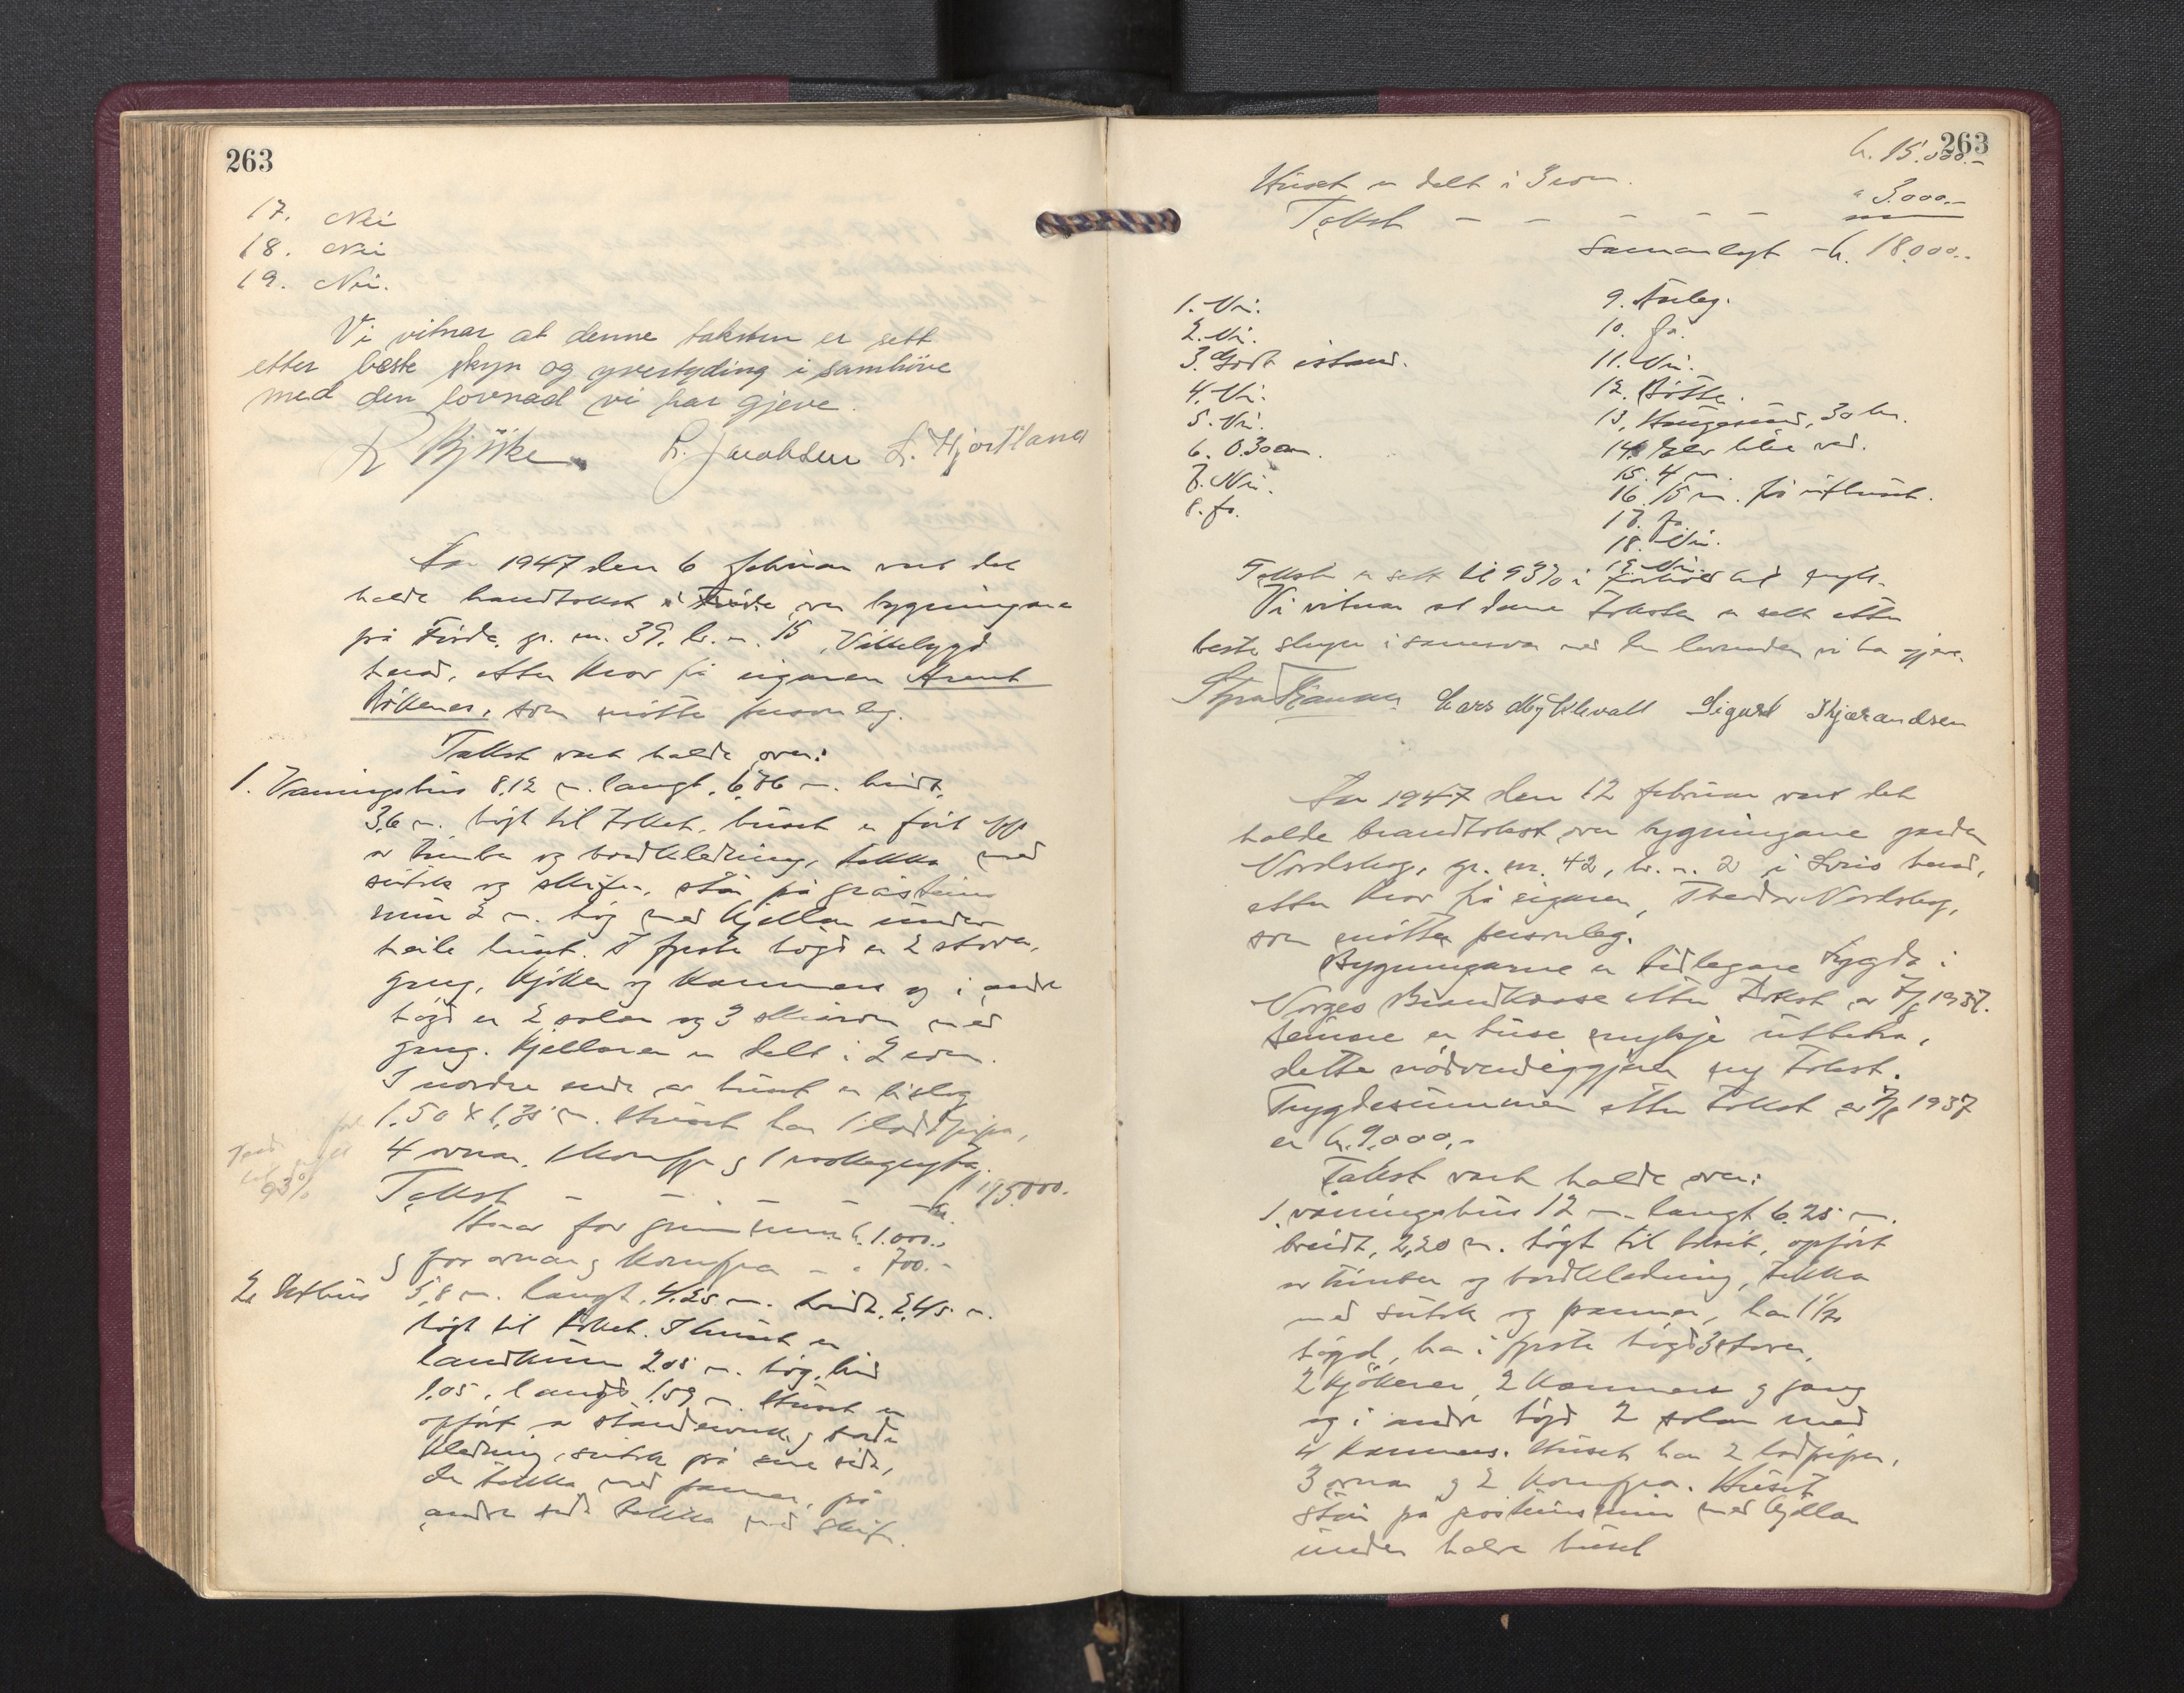 263
17. Nei
18. Nei
19. Nei.
Vi vitnar at denne taksten er sett
etter beste skyn og yvertyding i samhöve
med den lovnad vi har gjeve.
R Bjerke L. Jacobsen L. Hjortland
År 1947 den 6 februar vart det
halde brandtakst i Förde over bygningane
på Förde, gr. nr. 39, br. nr. 15, Vikebygd
herad, etter krav frå eigaren Arent
som møtte personleg.
Takst vart halde over:
1. Vaaningshus 8,12 m. langt, 6,76 m. breidt,
3,6 m. högt til taket, huset er fört opp
av timber og bordkledning, tekka med
sutak og skifer, står på gråsteins
mur 2 m. høg med kjellar under
heile huset. I fyrste högd er 2 stover,
gang, kjöken og kammers og i andre
högd er 2 salar og 3 med
gang. Kjellaren er delt i 2 rom.
I nordre ende av huset er bislag
1,50 x 1,35 m. Huset har 1 loddpipa,
4 ovnar, 1 komfyr og 1 vaskegryta.
93%
Takst - - - - kr. 15000.-
Herav for grunnmur kr. 1.000.-
og for ovnar og komfyra - " 700.-
2. Uthus 5,8 m. langt, 4,25 m. breidt, 2,45 m.
högt til taket. I huset er
2.05 m. høg, breid
1,05, langt 1.59 m. Huset er
opfört av standerverk og bord
kledning, sutak på eine side,
der tekka med panner, på
andre side tekka med skifer.
263
kr. 15.000.-
Huset er delt i 3 rom.
Takst - - - - - " 3.000.-
Samanlagt - kr. 18.000.-
1. Nei.
2. Nei.
3. Godt istand.
4. Nei.
5. Nei.
6. 0.30 cm.
7. Nei.
8. Ja.
9. Årleg.
10. Ja.
11. Nei.
12. Bøtte.
13. Haugesund, 30 km.
14. Elv like ved.
15. 4 m.
16. 15 m. frå uthuset.
17. Ja.
18. Nei.
19. Nei.
Taksten er sett til 93% i forhold til
Vi vitnar at denne taksten er sett etter
beste skyn i samsvar med den lovnaden vi har gjeve.
Lars Myklevoll Sigurd Skjærandsen
År 1947 den 12 februar vart det
halde brandtakst over bygningane garden
Nordskog, gr. nr. 42, br. nr. 2 i Sveio herad,
etter krav frå eigaren, Theodor Nordskog,
som møtte personleg.
Bygningarne er tidlegare trygda i
Norges Brandkasse etter takst av 7/8 1937.
Seinare er huse mykje utbetra,
dette nödvendiggjerer ny takst.
Trygdesummen etter takst av 7/8 1937
er kr. 9.000.-
Takst vart halde over:
1. våningshus 12 m. langt 6.25 m.
breidt, 2,20 m. högt til taket, opfört
av timber og bordkledning, tekka
med sutak og panner, har 1 1/2
högd, har i fyrste högd 3 stover,
2 kjökener, 2 kammers og gang
og i andre högd 2 salar med
4 kammers. Huset har 2 lodpiper,
3 ovnar og 2 komfyrar. Huset
står på gråsteinsmur med kjellar
under halve huset